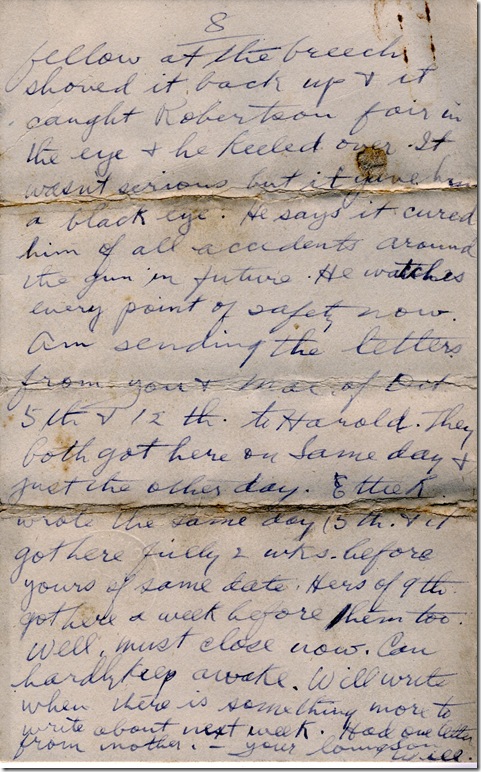 8
fellow at the breech
shoved it back up & it
caught Robertson fair in
the eye & he keeled over. It
wasn't serious but it gave him
a black eye. He says it cured
him of all accidents around
the gun in future. He watches
every point of safety now.
Am sending the letters
from you & Mac of Oct
5th & 12th. to Harold. They
both got here on same day &
just the other day.
wrote the same day (5th. & it
got here fully 2 wks. before
yours of same date. Hers of 9th.
got here a week before them too.
Well, must close now. Can
hardly keep awake. Will write
when there is something more to
write about next week. Had one letter
from mother. – your loving son
Will.